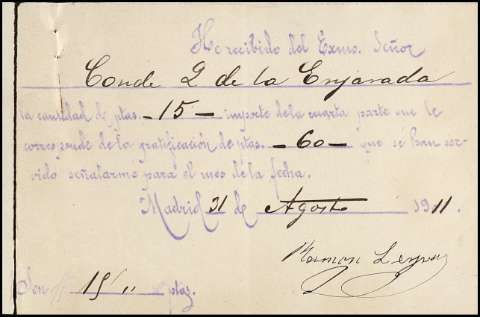 He recibido del Exmo. Señor
Conde 2 de la Enjarada
la cantidad de ptas. - 15 - importe de la cuarta parte que le
corresponde de la gratificación de ptas. - 60 - que se han ser-
vido señalarme para el mes de la fecha.
Madrid 31 de Agosto 1911.
Ramon
Son 15/,, ptas.